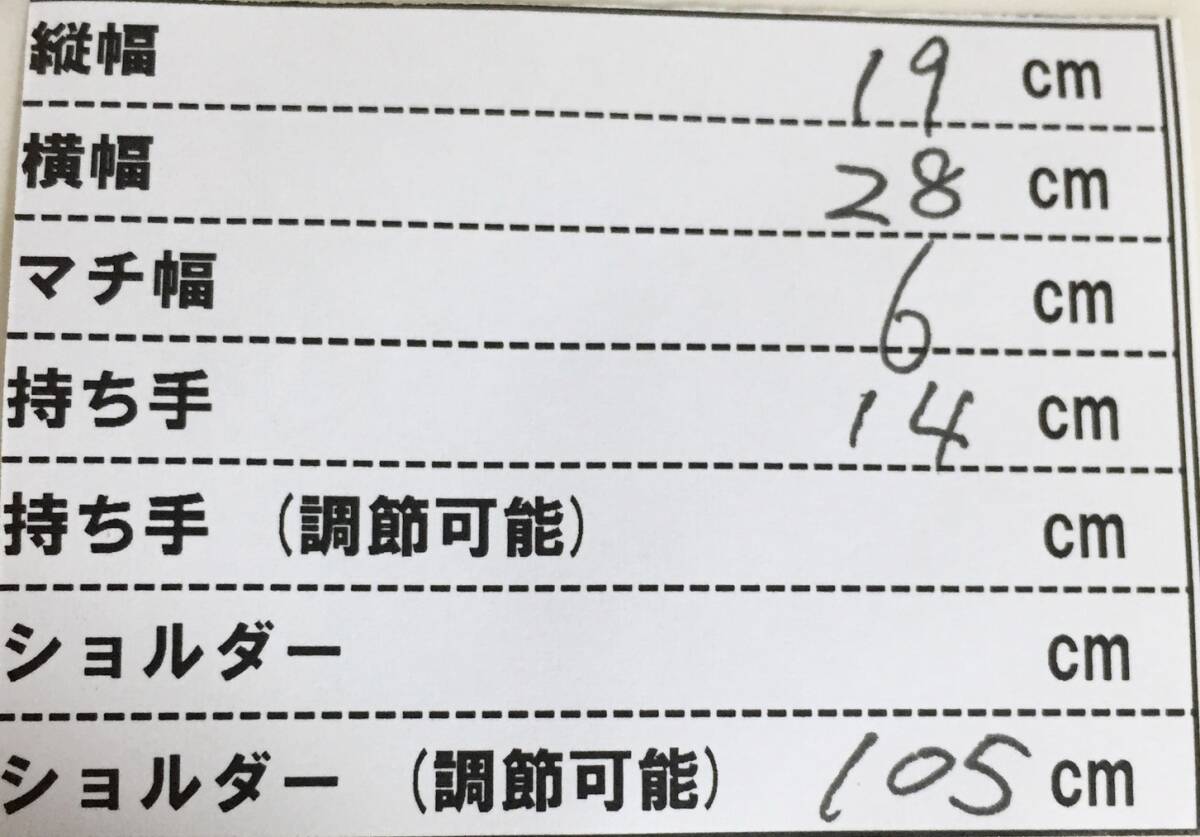 縦幅 19 cm
横幅 28 cm
マチ幅 6 cm
持ち手 14 cm
持ち手 (調節可能) cm
ショルダー cm
ショルダー (調節可能) 105 cm